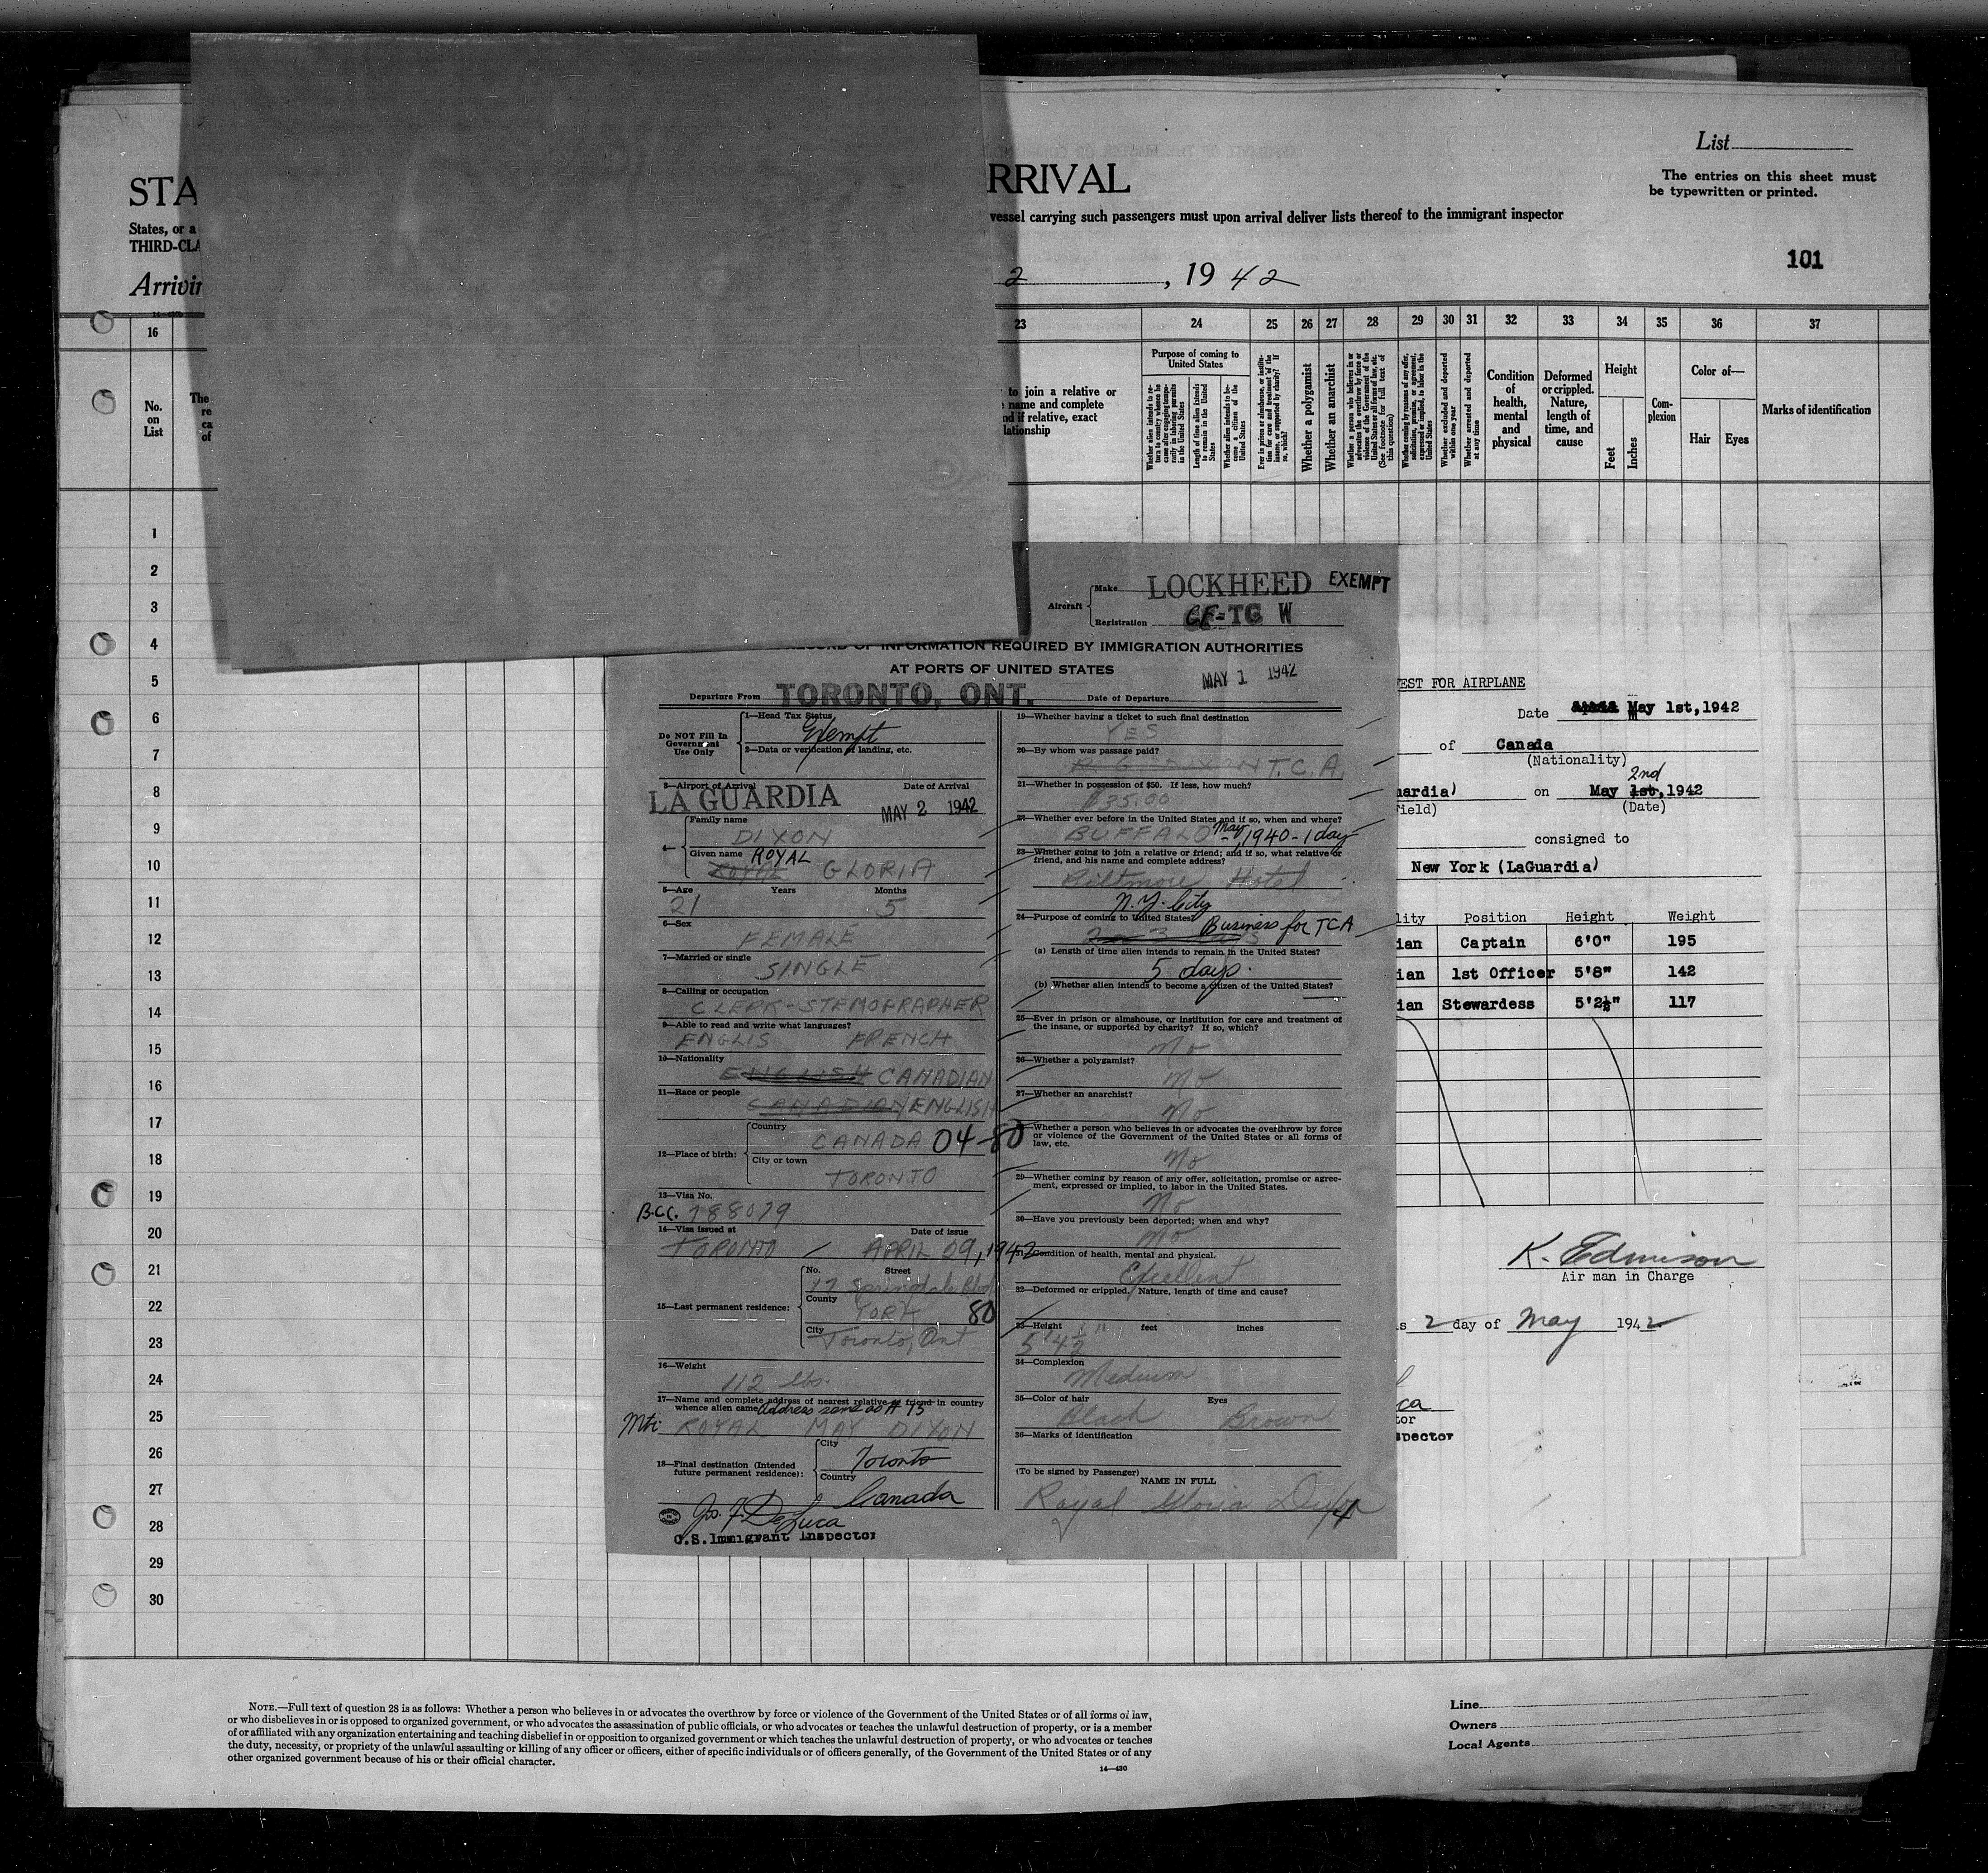 List
The entries on this sheet must
be typewritten or printed.
STA
RRIVAL
States, or a
vessel carrying such passengers must upon arrival deliver lists thereof to the immigrant inspector
THIRD-CLA
101
Arrivin
2, 1942
16
23
24
25
26
27
28
29
30
31
32
33
34
35
36
37
No.
on
List
The
re
ca
of
to join a relative or
name and complete
nd if relative, exact
lationship
Purpose of coming to
United States
Whether alien intends to re-
turn to country whence he
came after engaging tempo-
rarily in laboring pursuits
in the United States
Length of time alien intends
to remain in the United
States
Whether alien intends to be-
come a citizen of the
United States
Ever in prison or almshouse, or institu-
tion for care and treatment of the
insane, or supported by charity? If
so, which?
Whether a polygamist
Whether an anarchist
Whether a person who believes in or
advocates the overthrow by force or
violence of the Government of the
United States or all forms of law, etc.
(See footnote for full text of
this question)
Whether coming by reasons of any offer,
solicitation, promise, or agreement,
expressed or implied, to labor in the
United States
Whether excluded and deported
within one year
Whether arrested and deported
at any time
Condition
of
health,
mental
and
physical
Deformed
or crippled.
Nature,
length of
time, and
cause
Height
Feet
Inches
Com-
plexion
Color of—
Hair
Eyes
Marks of identification
1
2
3
4
5
6
7
8
9
10
11
12
13
14
15
16
17
18
19
20
21
22
23
24
25
26
27
28
29
30
Aircraft
Make LOCKHEED EXEMPT
Registration CF-TC W
RECORD OF INFORMATION REQUIRED BY IMMIGRATION AUTHORITIES
AT PORTS OF UNITED STATES
Departure From TORONTO, ONT. Date of Departure MAY 1 1942
Do NOT Fill In
Government
Use Only
1—Head Tax Status
Exempt
2—Data or verification of landing, etc.
3—Airport of Arrival Date of Arrival
LA GUARDIA MAY 2 1942
4—
Family name
DIXON
Given name ROYAL
ROYAL GLORIA
5—Age Years Months
21 5
6—Sex
FEMALE
7—Married or single
SINGLE
8—Calling or occupation
CLERK-STEMOGRAPHER
9—Able to read and write what languages?
ENGLIS FRENCH
10—Nationality
ENGLISH CANADIAN
11—Race or people
CANADIAN ENGLISH
12—Place of birth:
Country
CANADA 04-80
City or town
TORONTO
13—Visa No.
B.C.C. 788079
14—Visa issued at Date of issue
TORONTO APRIL 09, 1942
15—Last permanent residence:
No. Street
17 Springdale Blvd
County
YORK 80
City
Toronto, Ont
16—Weight
112 lbs.
17—Name and complete address of nearest relative or friend in country
whence alien came Address same as # 15
Mti ROYAL MAY DIXON
18—Final destination (Intended
future permanent residence):
City
Toronto
Country
Canada
Jos. F. DeLuca
U.S. Immigrant Inspector
19—Whether having a ticket to such final destination
YES
20—By whom was passage paid?
R G DIXON T.C.A.
21—Whether in possession of $50. If less, how much?
$35.00
22—Whether ever before in the United States and if so, when and where?
BUFFALO May, 1940 - 1 day
23—Whether going to join a relative or friend; and if so, what relative or
friend, and his name and complete address?
Biltmore Hotel
N.Y. City
24—Purpose of coming to United States
Business for TCA
2 or 3 days
(a) Length of time alien intends to remain in the United States?
5 days.
(b) Whether alien intends to become a citizen of the United States?
25—Ever in prison or almshouse, or institution for care and treatment of
the insane, or supported by charity? If so, which?
No
26—Whether a polygamist?
No
27—Whether an anarchist?
No
Whether a person who believes in or advocates the overthrow by force
or violence of the Government of the United States or all forms of
law, etc.
No
29—Whether coming by reason of any offer, solicitation, promise or agree-
ment, expressed or implied, to labor in the United States.
No
30—Have you previously been deported; when and why?
No
31—Condition of health, mental and physical.
Excellent
32—Deformed or crippled. Nature, length of time and cause?
33—Height feet inches
5' 4½"
34—Complexion
Medium
35—Color of hair Eyes
Black Brown
36—Marks of identification
(To be signed by Passenger)
NAME IN FULL
Royal Gloria Dixon
EST FOR AIRPLANE
Date May 1st, 1942
of Canada
(Nationality)
2nd
uardia) on May 1st, 1942
ield) (Date)
consigned to
New York (LaGuardia)
lity Position Height Weight
ian Captain 6'0" 195
ian 1st Officer 5'8" 142
ian Stewardess 5'2½" 117
K. Edmison
Air man in Charge
s 2 day of May 1942
ca
tor
spector
NOTE.—Full text of question 28 is as follows: Whether a person who believes in or advocates the overthrow by force or violence of the Government of the United States or of all forms of law,
or who disbelieves in or is opposed to organized government, or who advocates the assassination of public officials, or who advocates or teaches the unlawful destruction of property, or is a member
of or affiliated with any organization entertaining and teaching disbelief in or opposition to organized government or which teaches the unlawful destruction of property, or who advocates or teaches
the duty, necessity, or propriety of the unlawful assaulting or killing of any officer or officers, either of specific individuals or of officers generally, of the Government of the United States or of any
other organized government because of his or their official character.
14—430
Line
Owners
Local Agents